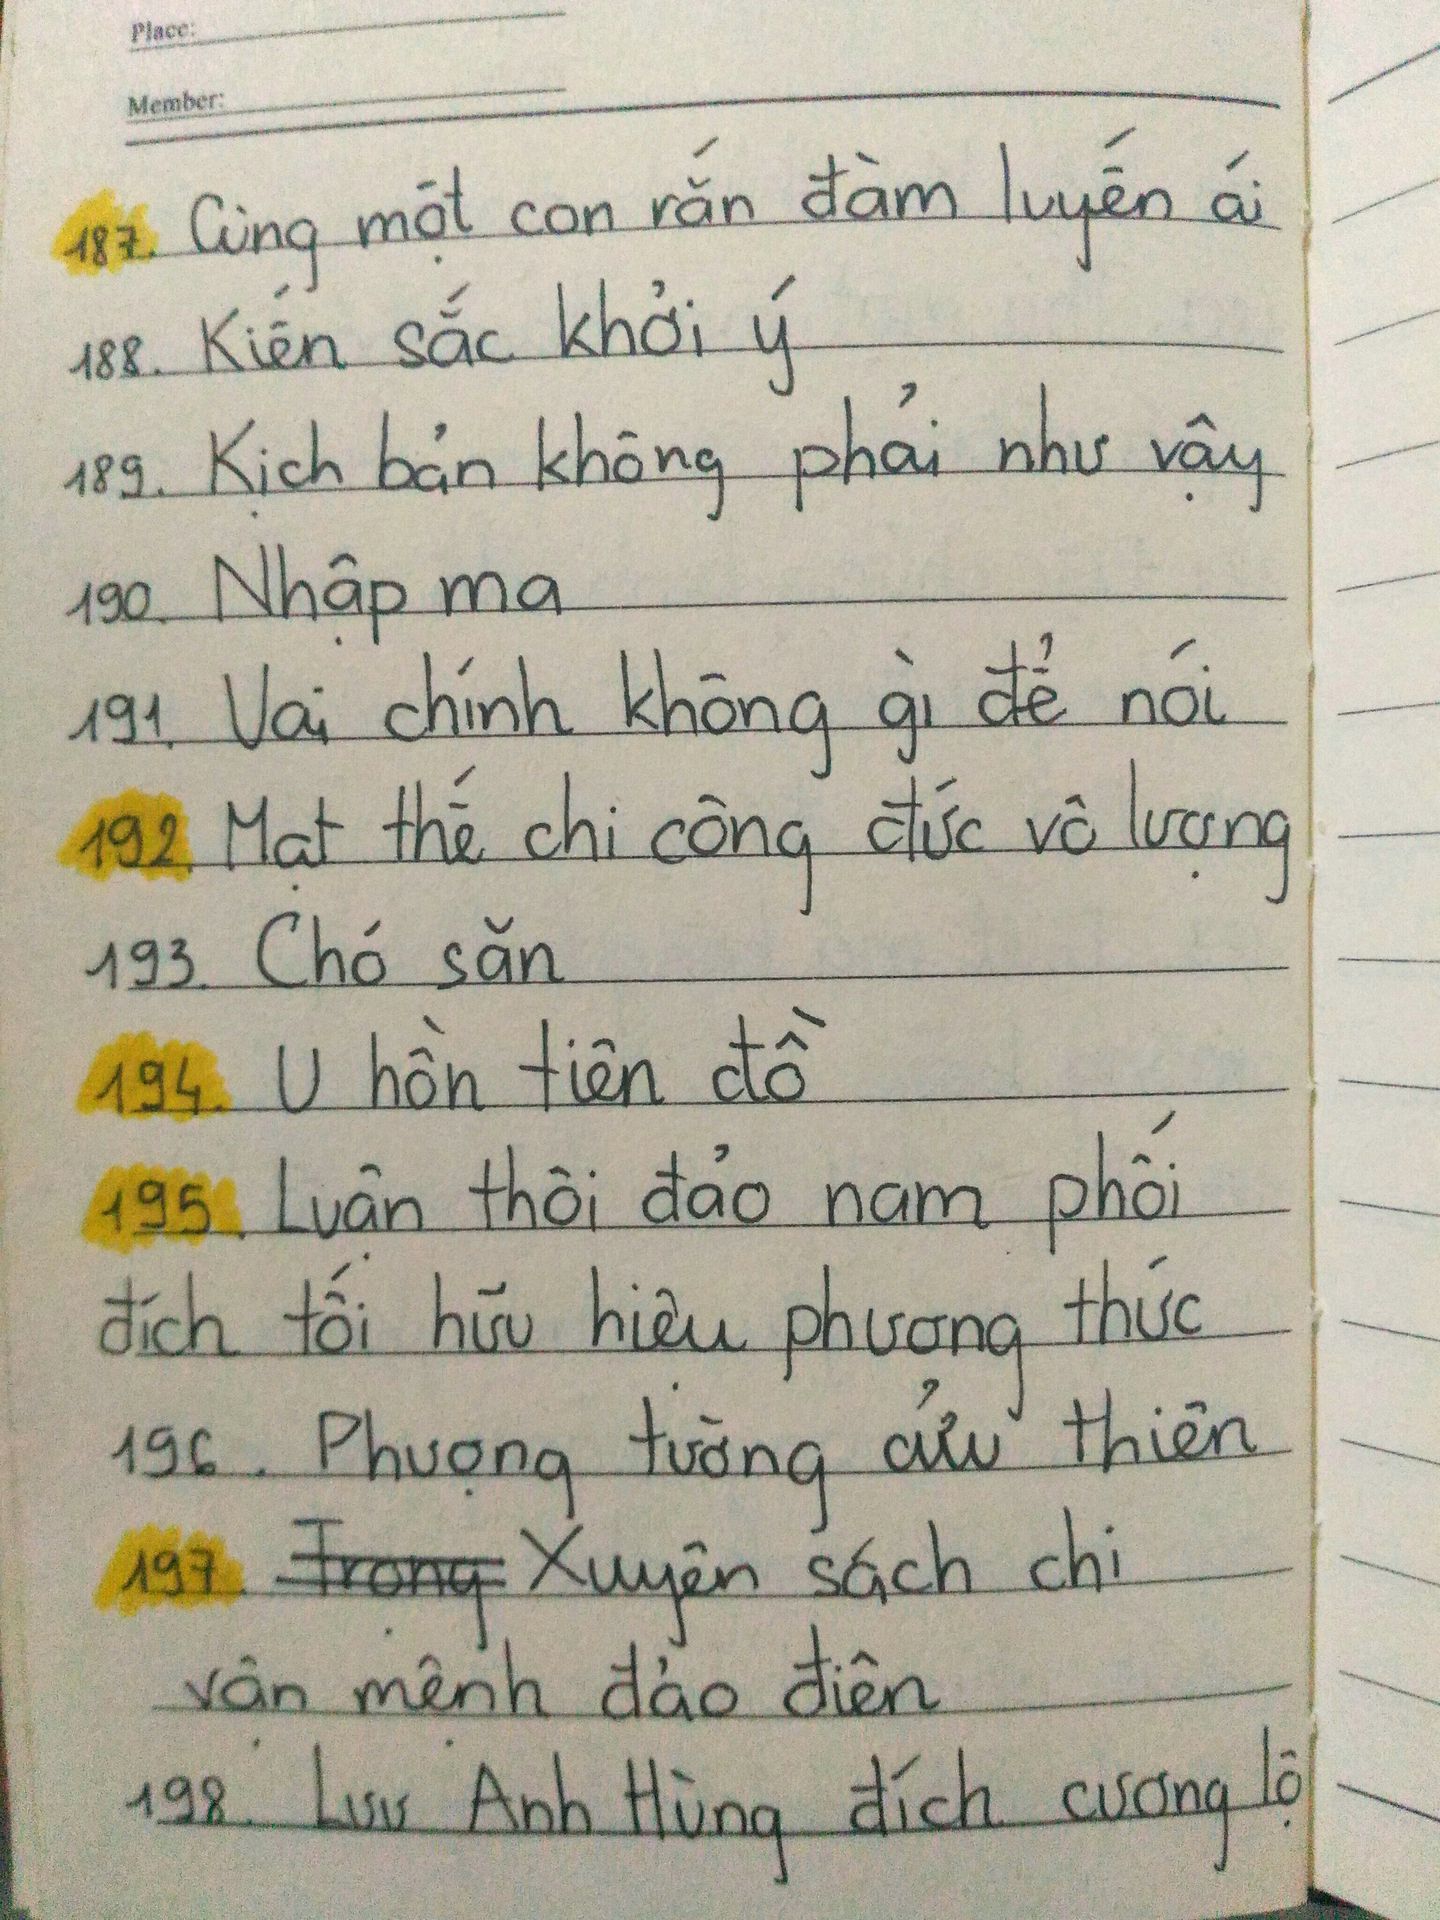 Place:
Member:
187. Cùng một con rắn đàm luyến ái
188. Kiến sắc khởi ý
189. Kịch bản không phải như vậy
190. Nhập ma
191. Vai chính không gì để nói
192. Mạt thế chi công đức vô lượng
193. Chó săn
194. U hồn tiên đồ
195. Luận thôi đảo nam phối
đích tối hữu hiệu phương thức
196. Phượng tường cửu thiên
197. Trọng Xuyên sách chi
vận mệnh đảo điên
198. Lưu Anh Hùng đích cương lộ